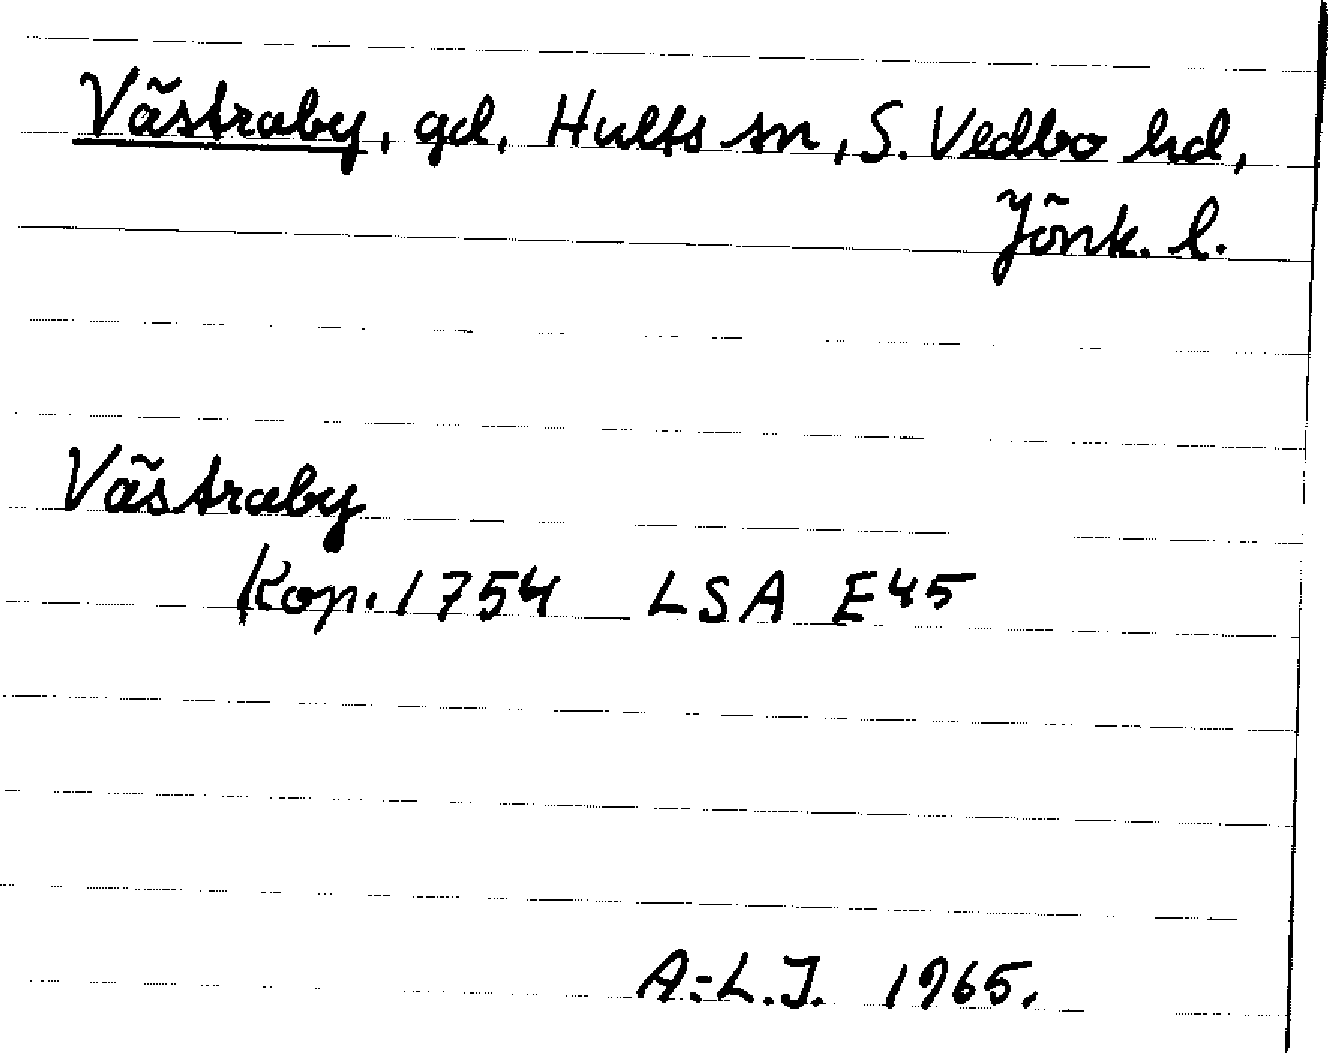 Västraby, gd, Hults sn, S. Vedbo hd,
Jönk. l.
Västraby
Kop. 1754 LSA E45
A.-L.J. 1965.